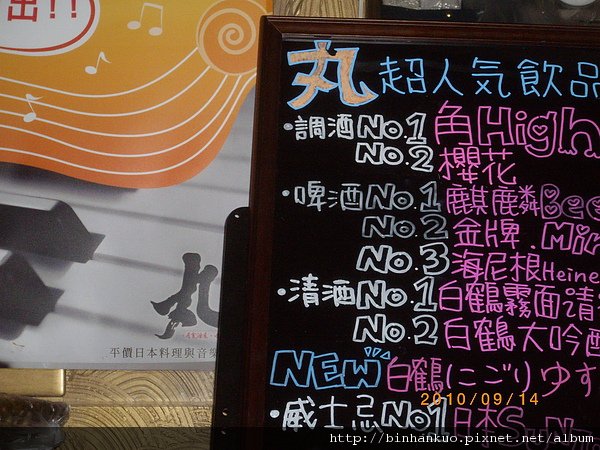 出!!
丸
平價日本料理與音樂
丸超人気飲品
•調酒No.1 角High
No.2 櫻花
•啤酒No.1 麒麟Bee
No.2 金牌.Min
No.3 海尼根Heine
•清酒No.1 白鶴霧面清
No.2 白鶴大吟
NEW 白鶴にごりゆず
•威士忌No1 日本Sun
2010/09/14
http://binhankuo.pixnet.net/album